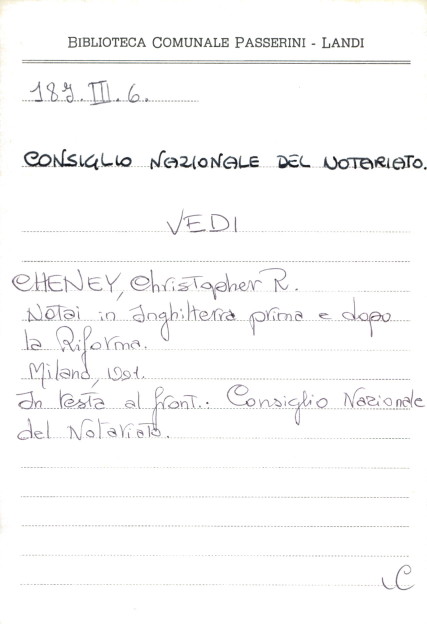 BIBLIOTECA COMUNALE PASSERINI - LANDI
CONSIGLIO NAZIONALE DEL NOTARIATO.
VEDI
CHENEY, Christopher R.
Notai in Inghilterra prima e dopo
la Riforma.
Milano, 1991.
In testa al front.: Consiglio Nazionale
del Notariato.